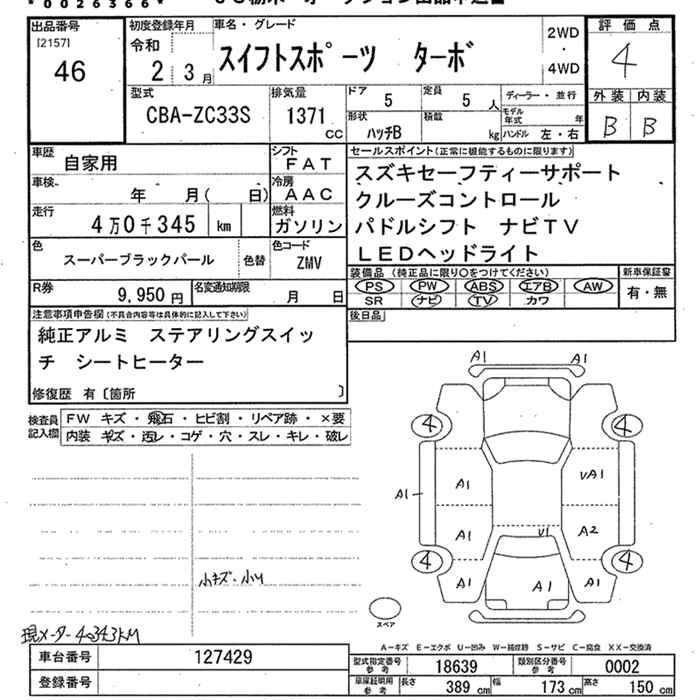 * 0 0 2 6 3 6 6 *
出品番号
[2157]
46
初度登録年月
令和
2 3月
車名・グレード
スイフトスポーツ ターボ
2WD
・
4WD
評価点
4
外装 内装
B B
型式
CBA-ZC33S
排気量
1371
cc
ドア
5
定員
5 人
形状
ハッチB
積載
kg
ディーラー・並行
モデル年式 年
ハンドル 左・右
車歴
自家用
シフト
FAT
車検
年 月( 日)
冷房
AAC
走行
4万0千345 km
燃料
ガソリン
色
スーパーブラックパール
色替
色コード
ZMV
R券
9,950円
名変通知期限
月 日
セールスポイント(正常に機能するものに限ります)
スズキセーフティーサポート
クルーズコントロール
パドルシフト ナビTV
LEDヘッドライト
装備品 (純正品に限り○をつけてください)
PS PW ABS エアB AW
SR ナビ TV カワ
新車保証書
有・無
後日品
注意事項申告欄(不具合内容等は具体的に記入して下さい)
純正アルミ ステアリングスイッ
チ シートヒーター
修復歴 有〔箇所 〕
検査員
記入欄
FW キズ・飛石・ヒビ割・リペア跡・×要
内装 キズ・汚レ・コゲ・穴・スレ・キレ・破レ
A1 A1
4 4
A1 A1 A1
A1 A2
U1
4 4
A1 A1 A1
スペア
小キズ・小U
現メーター40343KM
A-キズ E-エクボ U-凹み W-補修跡 S-サビ C-腐食 XX-交換済
車台番号
127429
登録番号
型式指定番号
参考
18639
類別区分番号
参考
0002
車庫証明用
参考
長さ
389 cm
幅
173 cm
高さ
150 cm